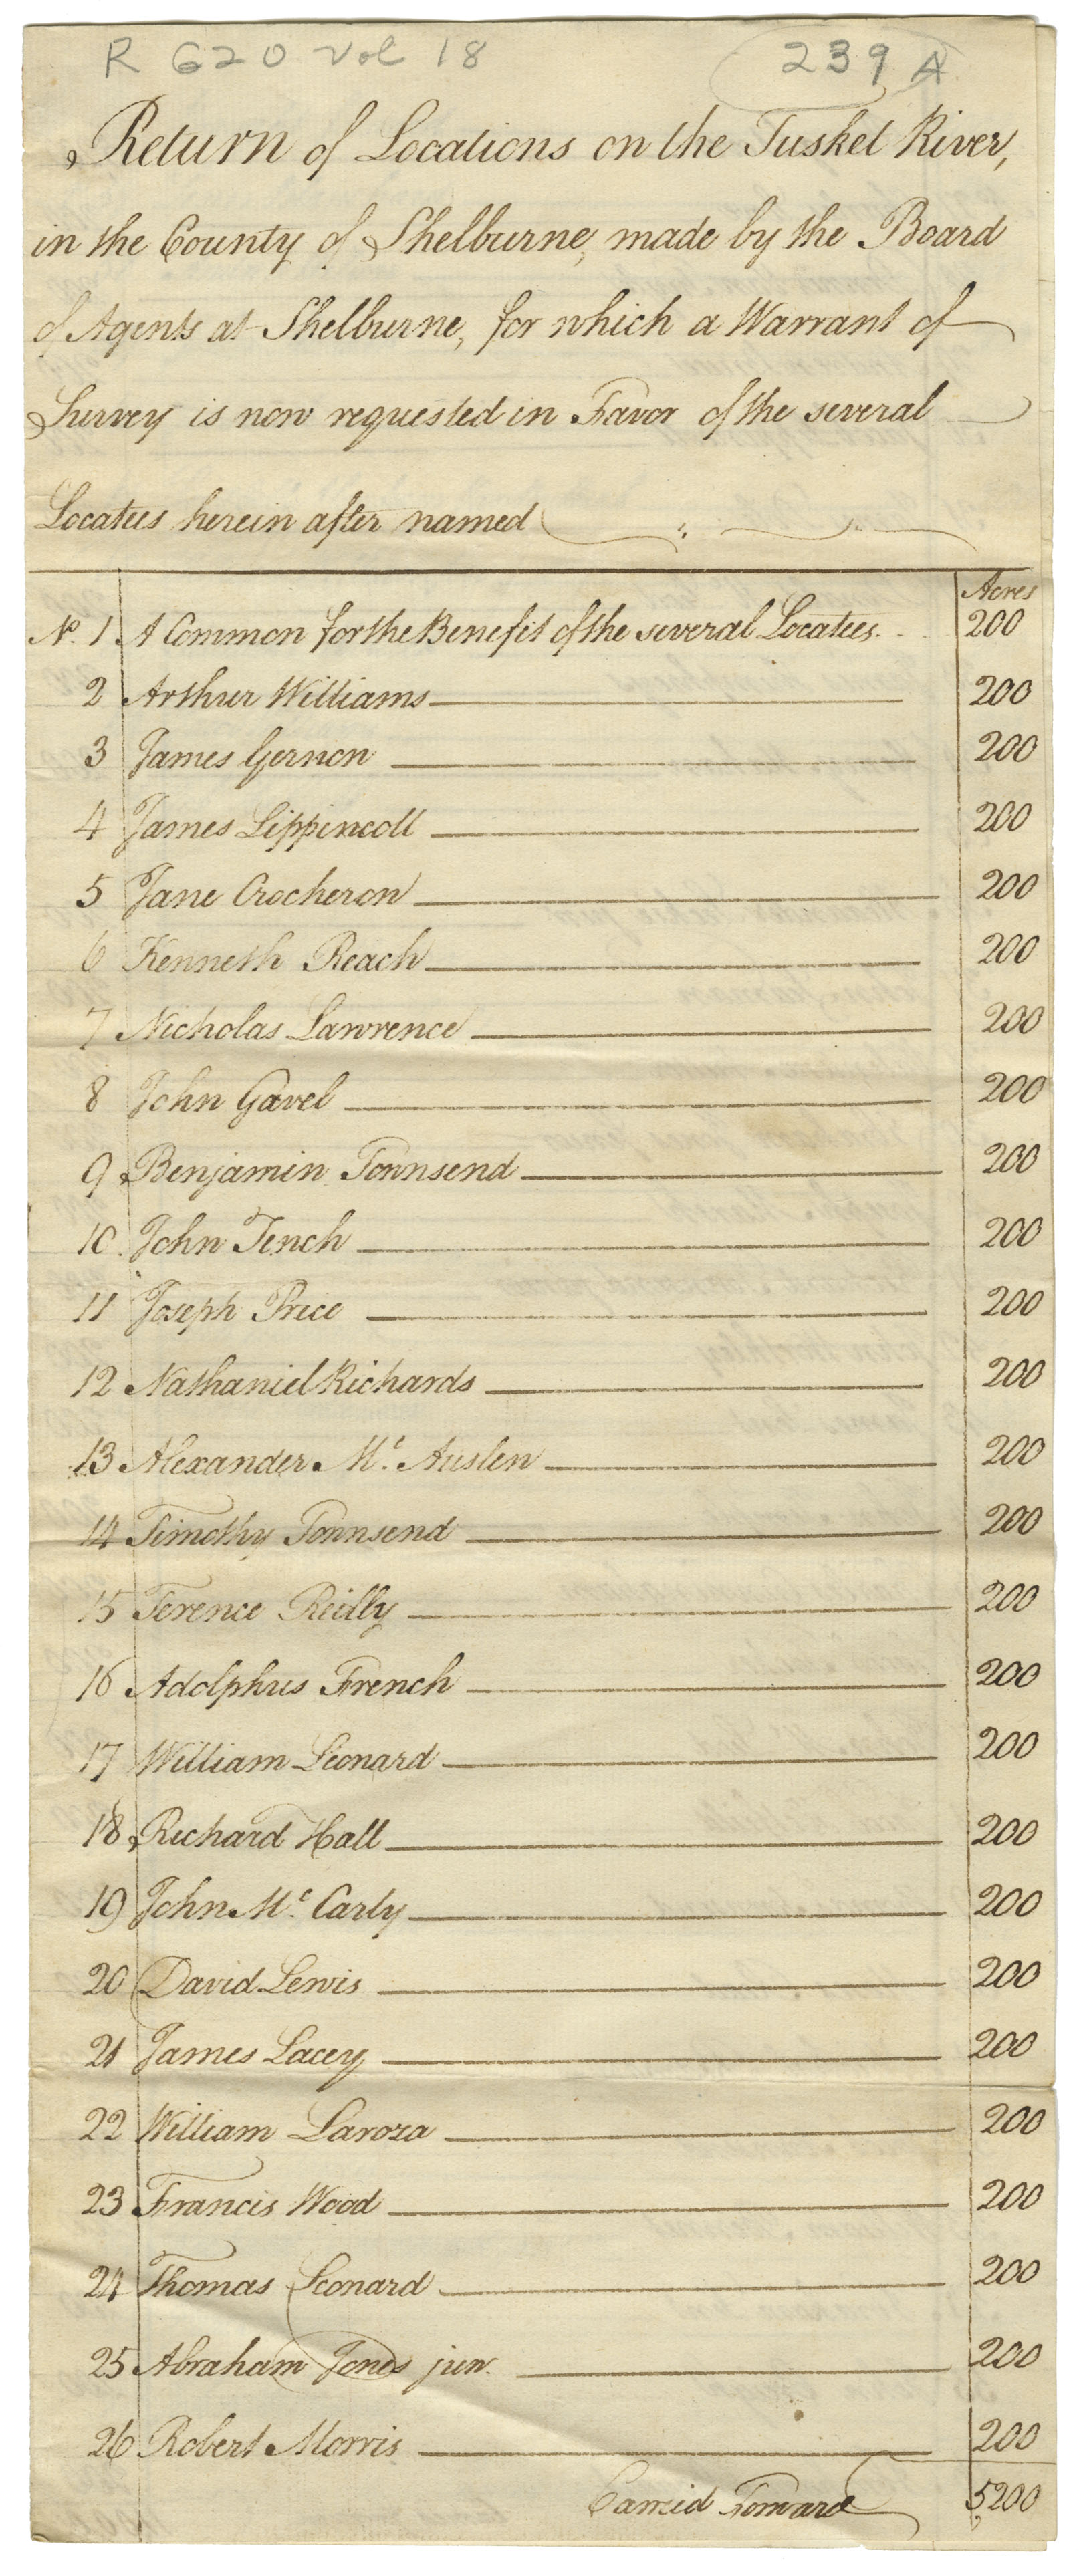 R G20 Vol 18 239 A
Return of Locations on the Tusket River,
in the County of Shelburne, made by the Board
of Agents at Shelburne, for which a Warrant of
Survey is now requested in Favor of the several
Locatees herein after named
Acres
No. 1 A Common for the Benefit of the several Locatees 200
2 Arthur Williams 200
3 James Gernon 200
4 James Lippincott 200
5 Jane Crocheron 200
6 Kenneth Reach 200
7 Nicholas Lawrence 200
8 John Gavel 200
9 Benjamin Townsend 200
10 John Tench 200
11 Joseph Price 200
12 Nathaniel Richards 200
13 Alexander Mc. Auslen 200
14 Timothy Townsend 200
15 Terence Reilly 200
16 Adolphus French 200
17 William Leonard 200
18 Richard Hall 200
19 John Mc. Carty 200
20 David Lewis 200
21 James Lacey 200
22 William Laroza 200
23 Francis Wood 200
24 Thomas Leonard 200
25 Abraham Jones jun. 200
26 Robert Morris 200
Carried Forward 5200